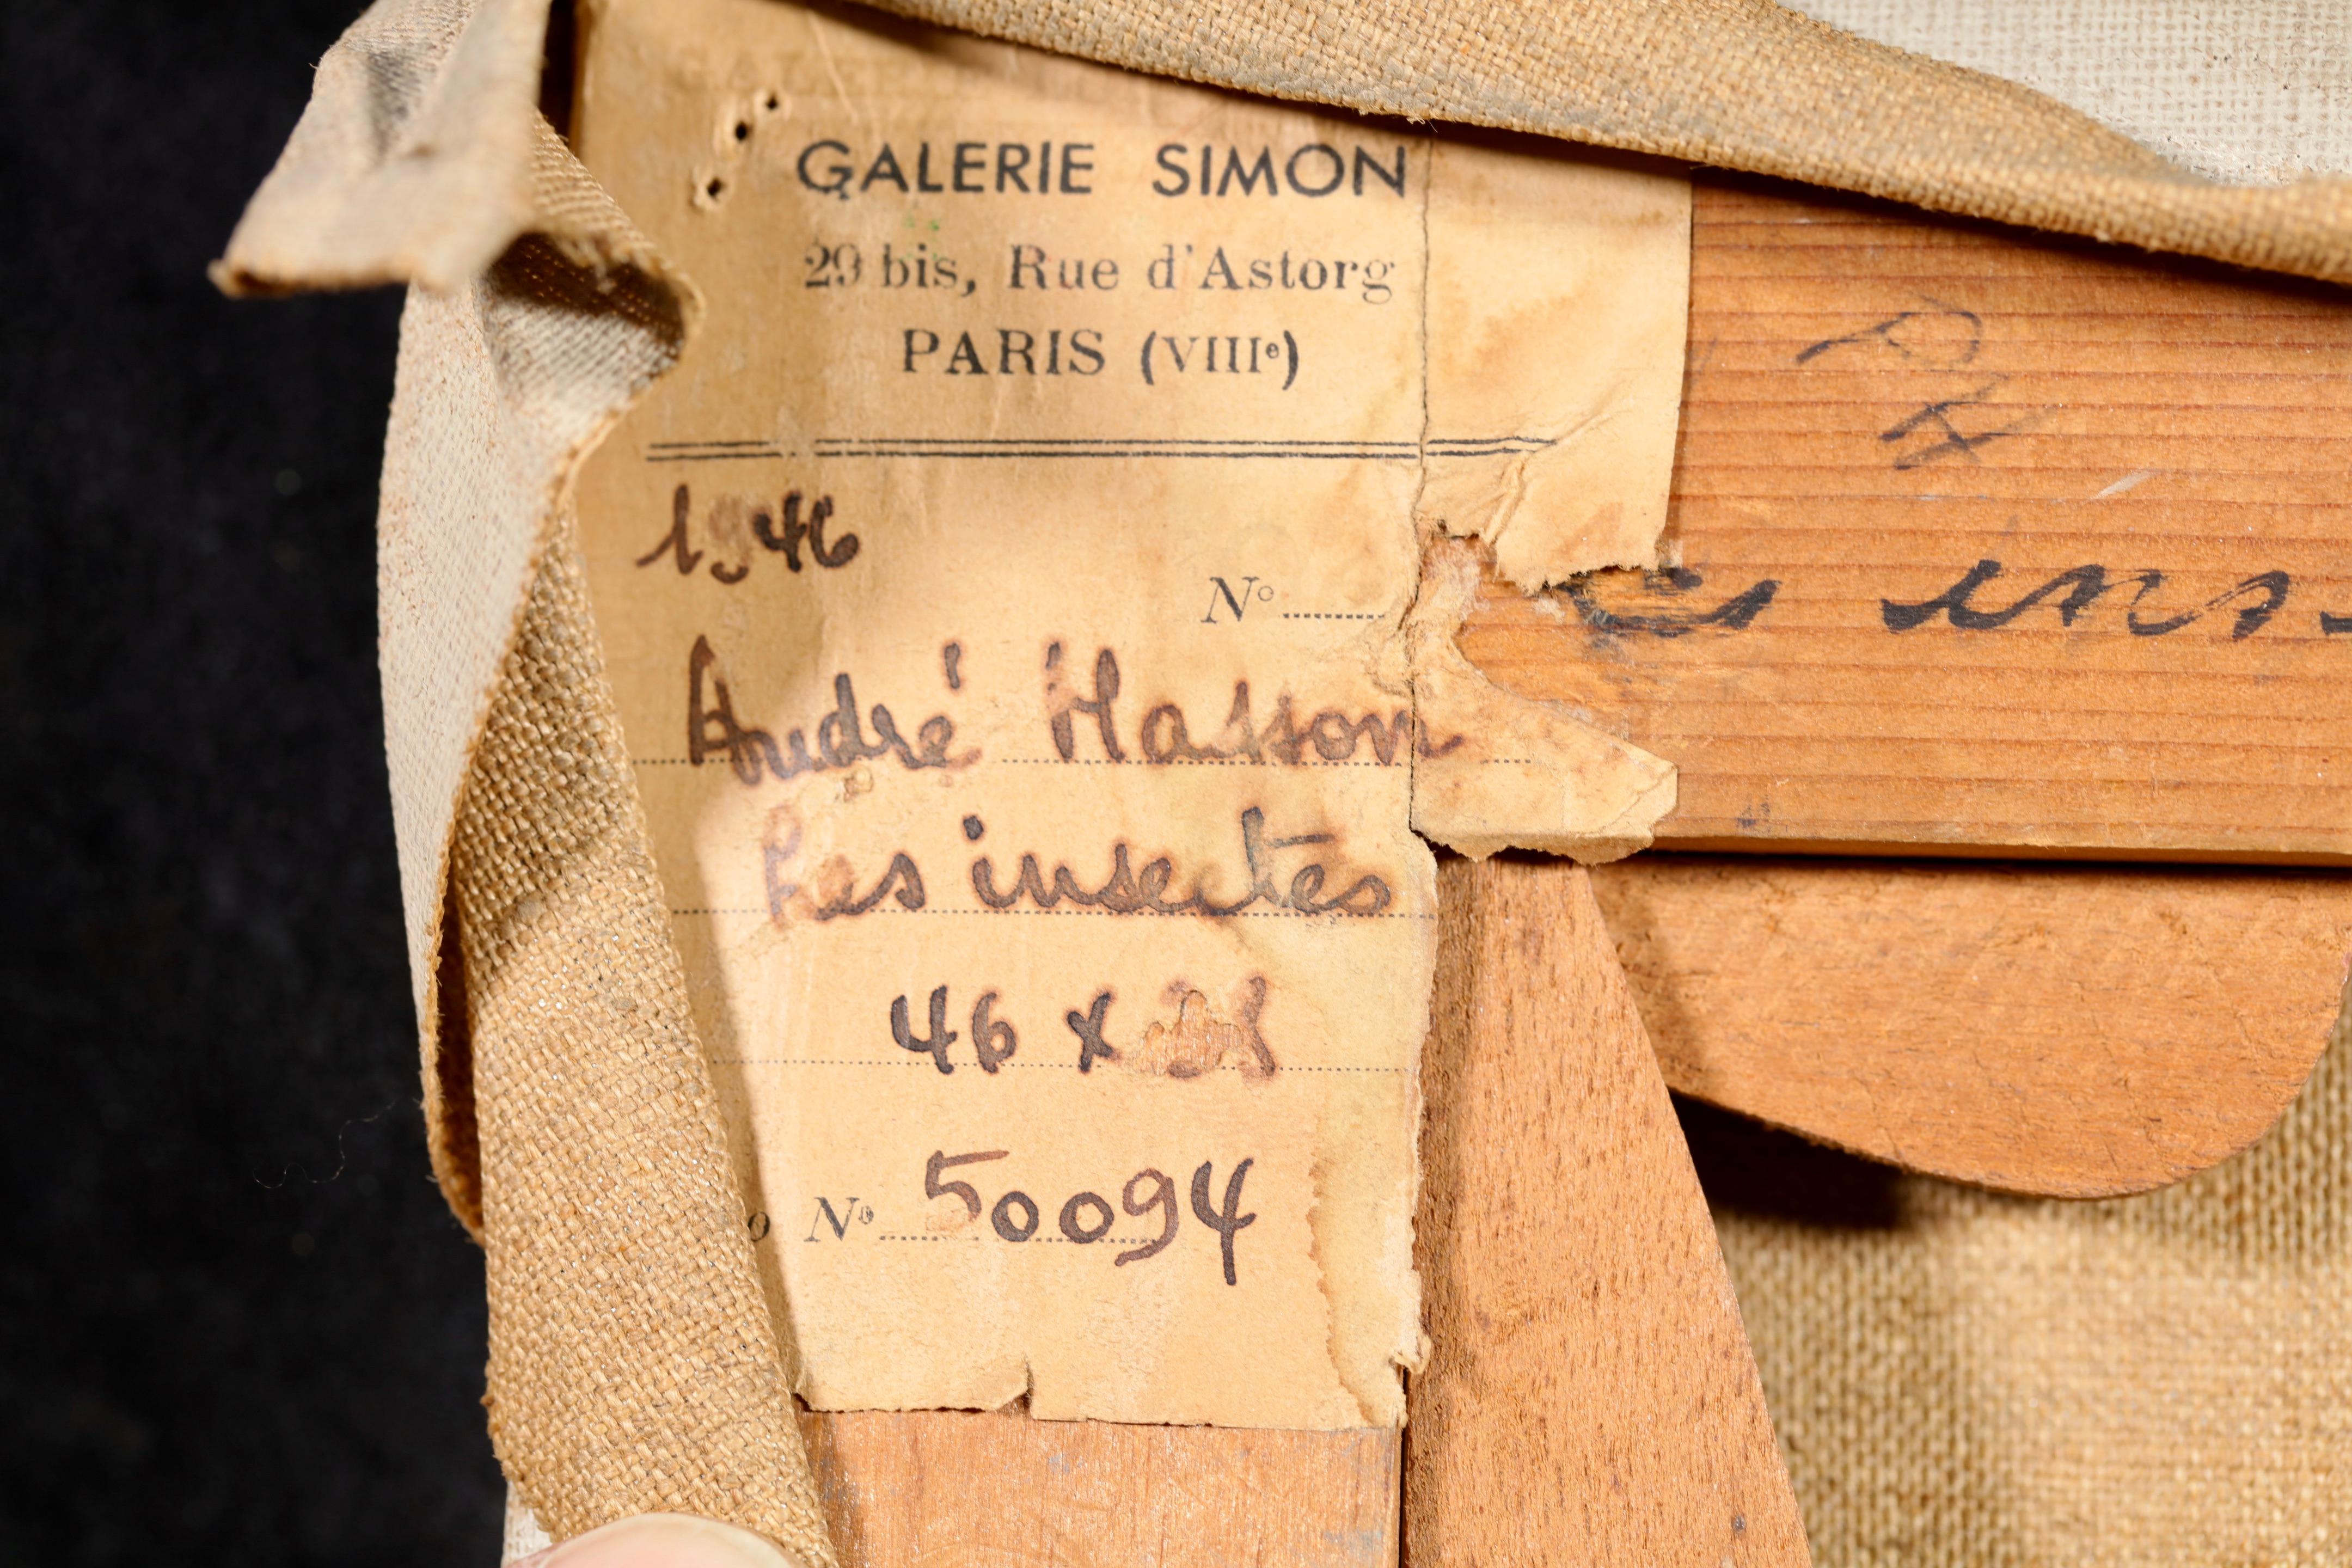 GALERIE SIMON
29 bis, Rue d'Astorg
PARIS (VIIIe)
1946
N°
André Masson
Les insectes
46 x
N° 50094